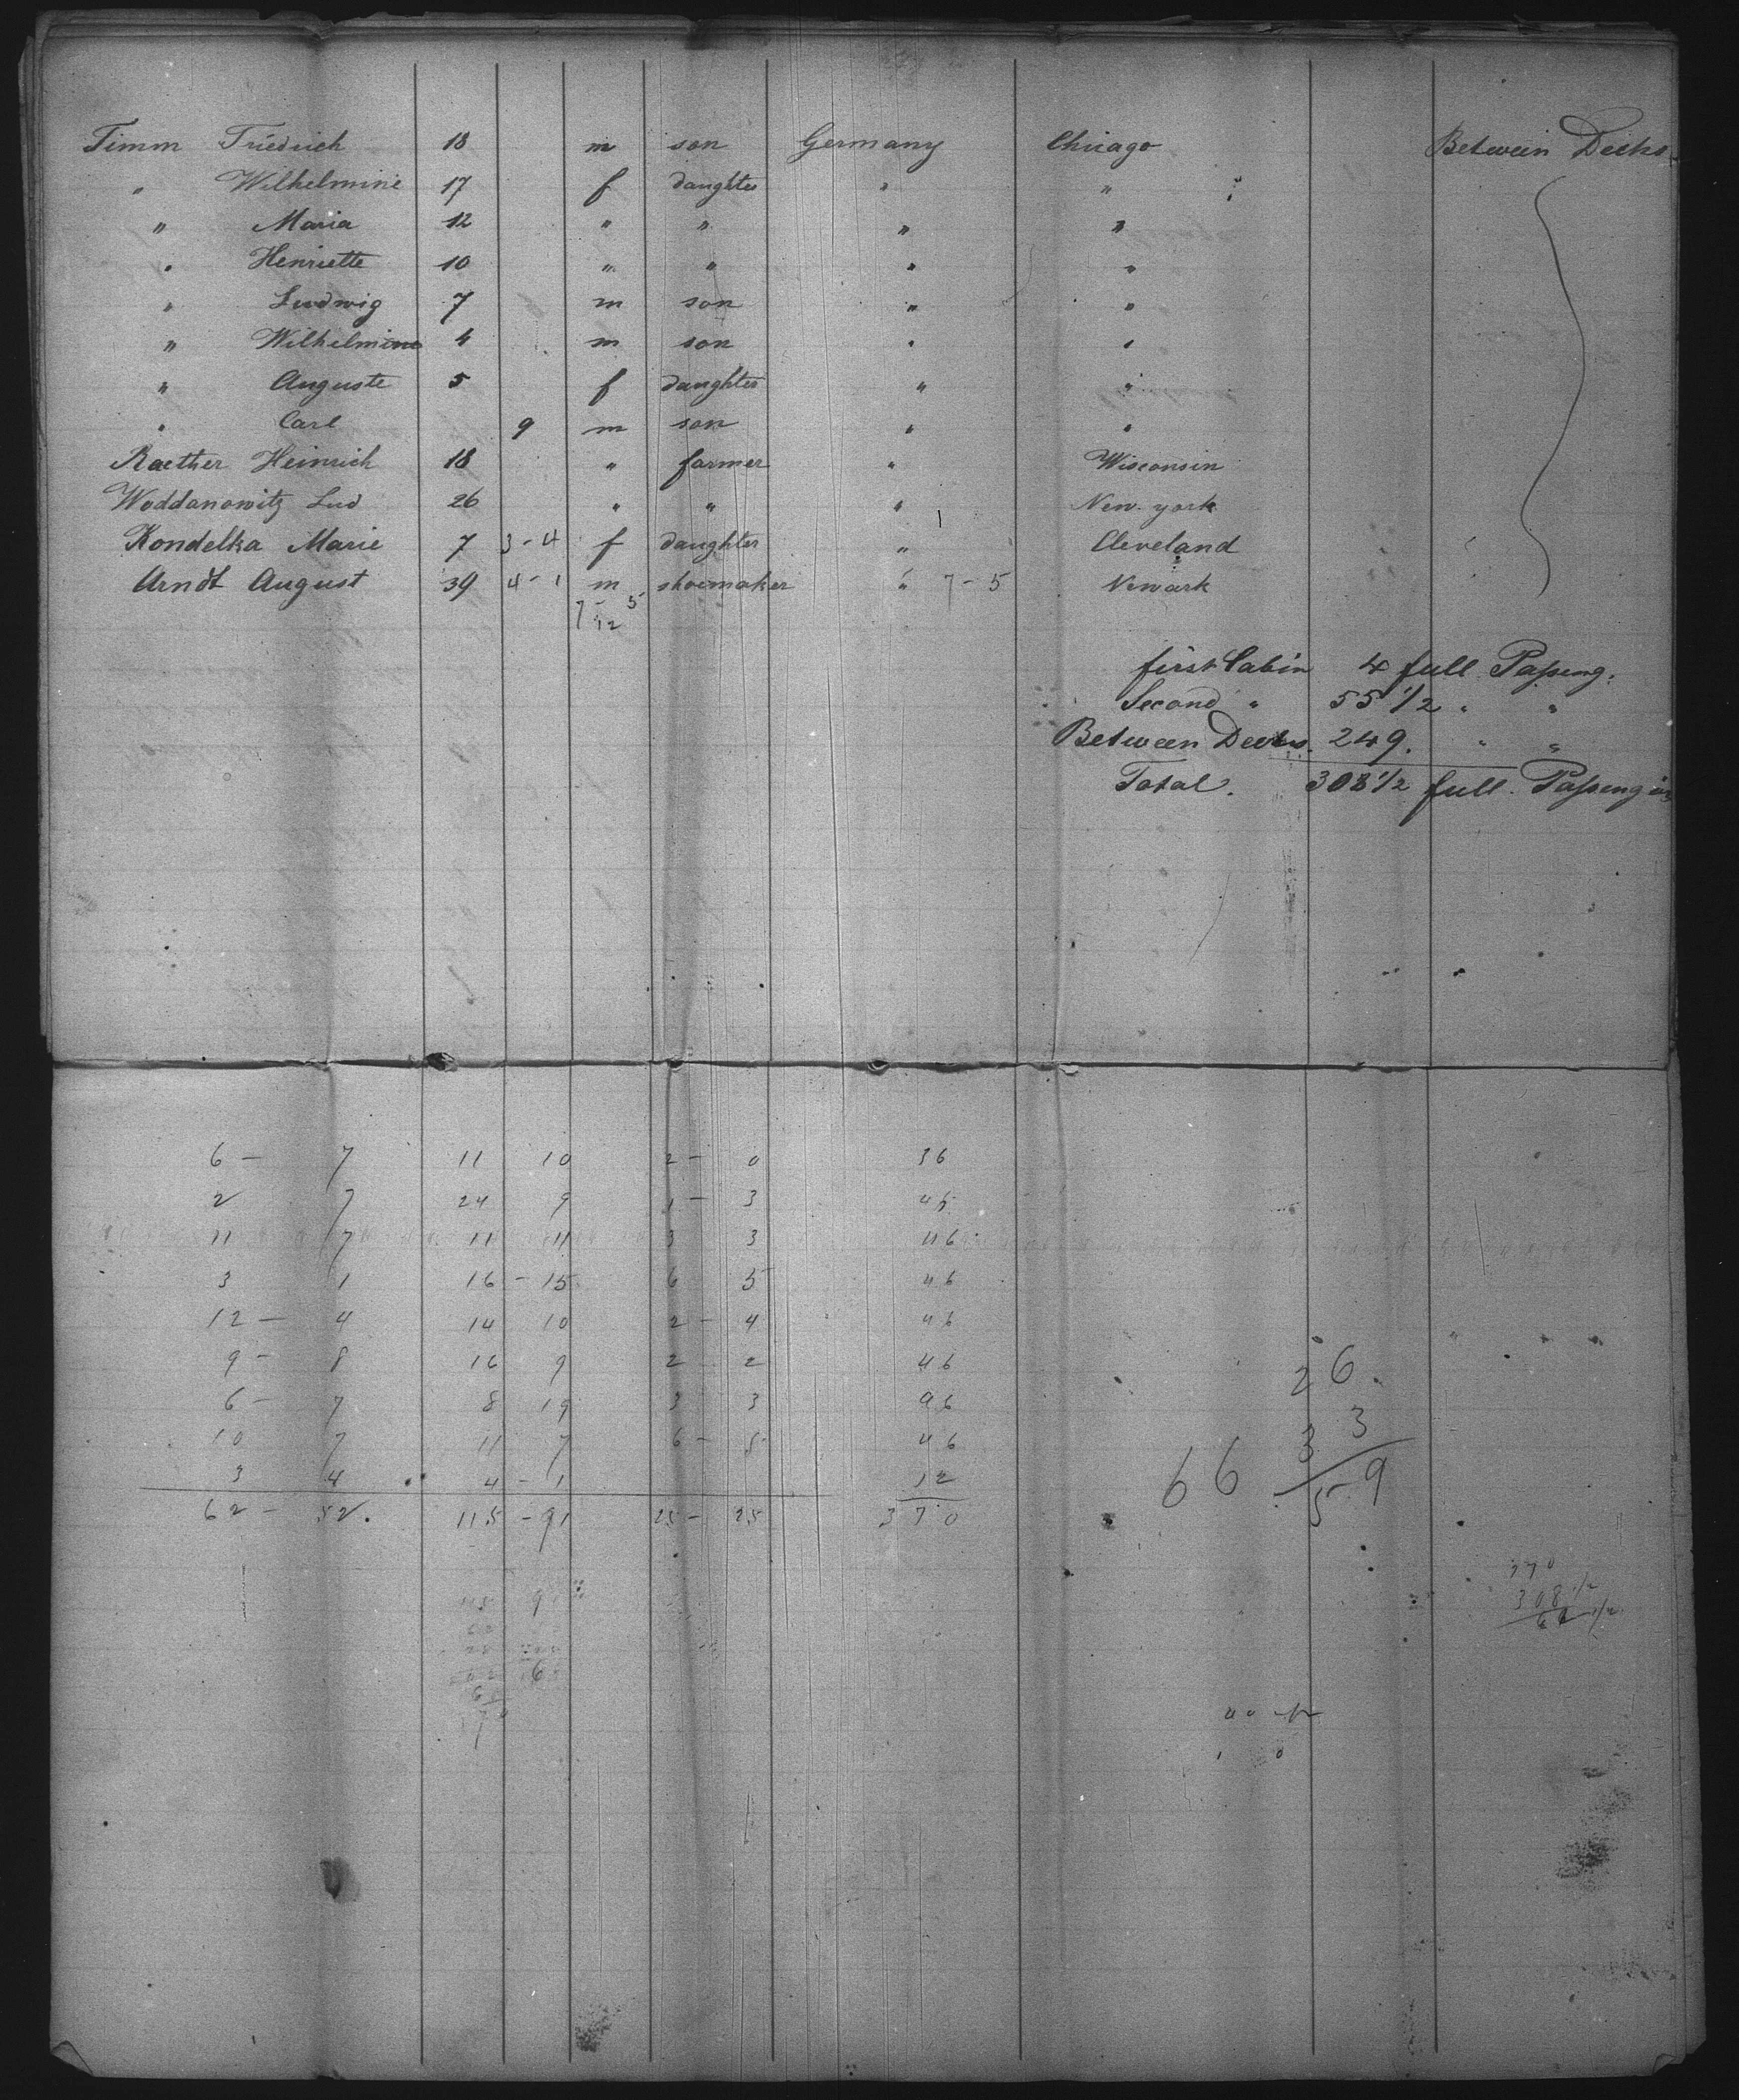 Timm Friedrich 18 m son Germany Chicago Between Decks
" Wilhelmine 17 f daughter " "
" Maria 12 " " " "
" Henriette 10 " " " "
" Ludwig 7 m son " "
" Wilhelmine 4 m son " "
" Auguste 5 f daughter " "
" Carl 9 m son " "
Raether Heinrich 18 " farmer " Wisconsin
Woddanowitz Lud 26 " " " New-york
Kondelka Marie 7 3-4 f daughter " Cleveland
Arndt August 39 4-1 m shoemaker " 7-5 Newark
7-5
12
first Cabin 4 full Passeng.
Second " 55 1/2 " "
Between Decks. 249. " "
Total. 308 1/2 full Passengers
6 - 7 11 10 2 - 0 36
2 7 24 9 1 - 3 45
11 7 11 11 3 3 46
3 1 16 - 15 6 5 46
12 - 4 14 10 2 - 4 46
9 - 8 16 9 2 2 46
6 - 7 8 19 3 3 46
10 7 11 7 6 - 5 46
3 4 4 - 1 12
62 - 52. 115 - 91 25 - 25 370
26
33
66 59
370
308 1/2